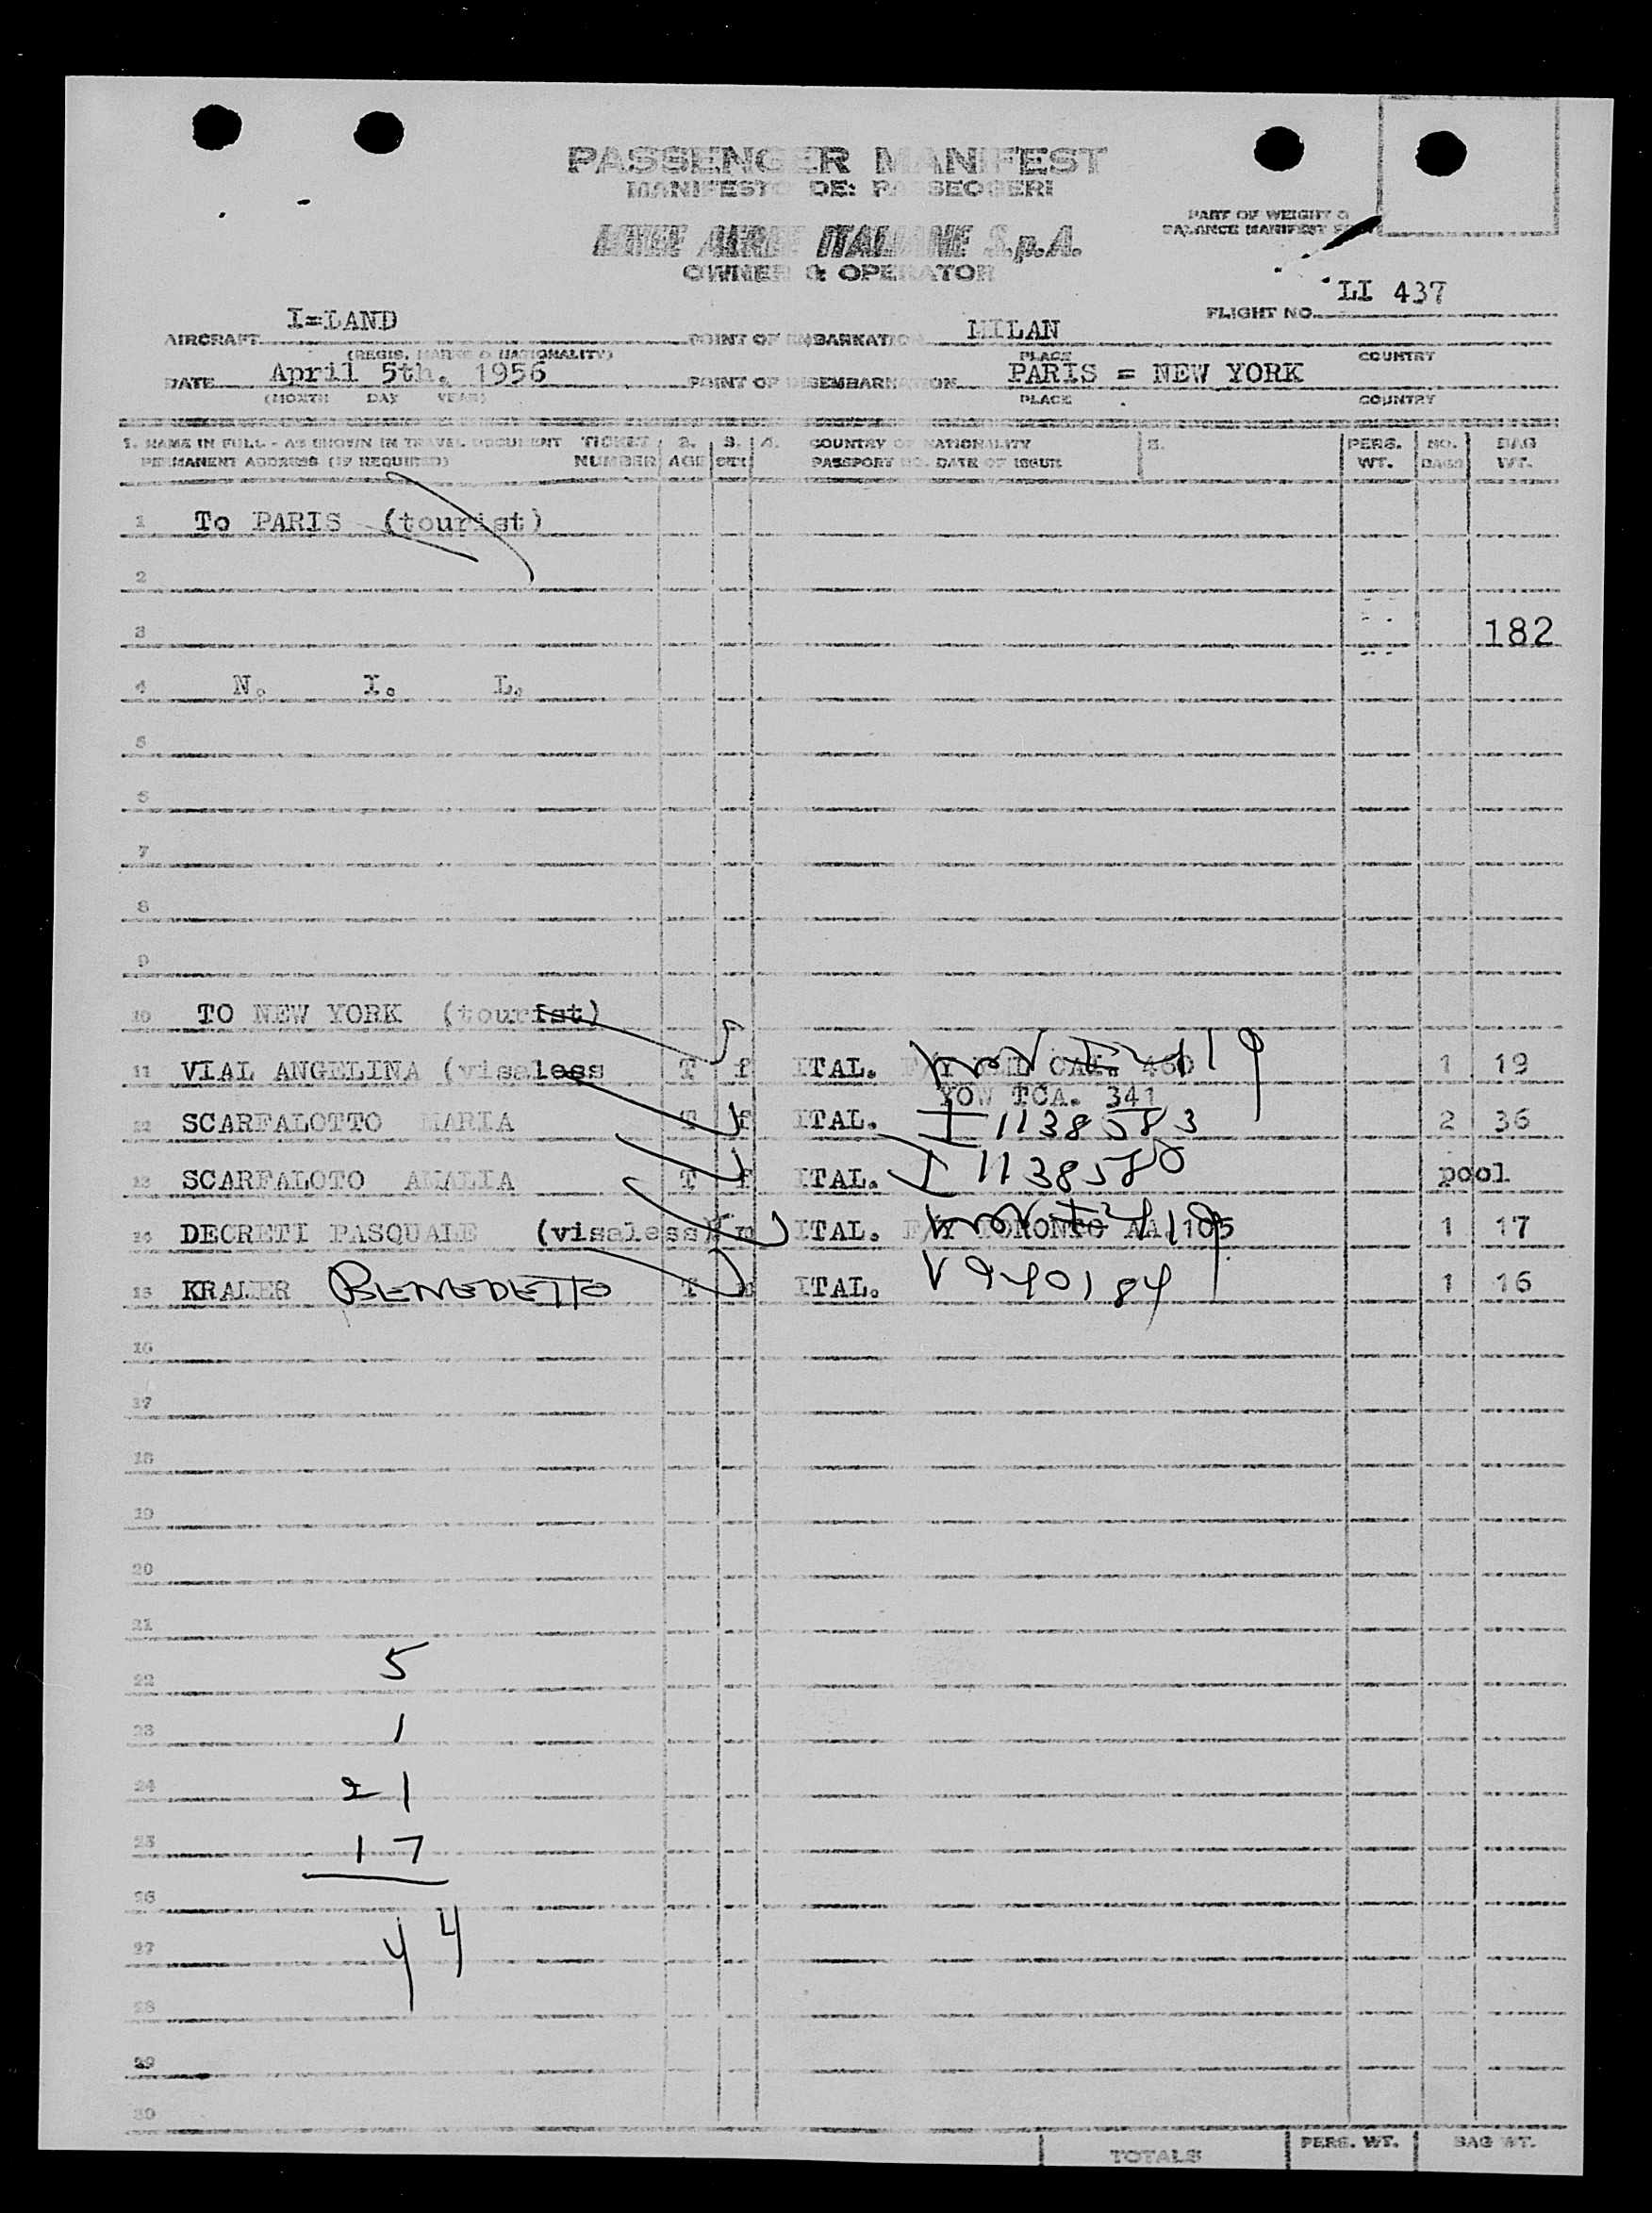 PASSENGER MANIFEST
MANIFESTO DEI PASSEGGERI
LINEE AEREE ITALIANE S.p.A.
OWNER & OPERATOR
PART OF WEIGHT &
BALANCE MANIFEST
FLIGHT NO. LI 437
AIRCRAFT I=LAND POINT OF EMBARKATION MILAN
(REGIS. MARKS & NATIONALITY) PLACE COUNTRY
DATE April 5th. 1956 POINT OF DISEMBARKATION PARIS = NEW YORK
(MONTH DAY YEAR) PLACE COUNTRY
1. NAME IN FULL - AS SHOWN IN TRAVEL DOCUMENT TICKET 2. 3. 4. COUNTRY OF NATIONALITY 5. PERS. NO. BAG
PERMANENT ADDRESS (IF REQUIRED) NUMBER AGE SEX PASSPORT NO. DATE OF ISSUE WT. BAGS WT.
1 To PARIS (tourist)
2
3 182
4 N. I. L.
5
6
7
8
9
10 TO NEW YORK (tourist)
11 VIAL ANGELINA (visaless T f ITAL. 1 19
YOW TCA. 341
12 SCARFALOTTO MARIA T f ITAL. I 1138583 2 36
13 SCARFALOTO AMALIA T f ITAL. I 1138580 pool
14 DECRETI PASQUALE (visaless) m ITAL. TORONTO AA 105 1 17
15 KRAMER BENEDETTO T m ITAL. V 940184 1 16
16
17
18
19
20
21
22 5
23 1
24 21
25 17
26
27 44
28
29
30
TOTALS PERS. WT. BAG WT.